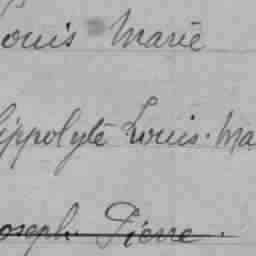 ouis Marie
ippolyte Louis. Ma
oseph Pierre.